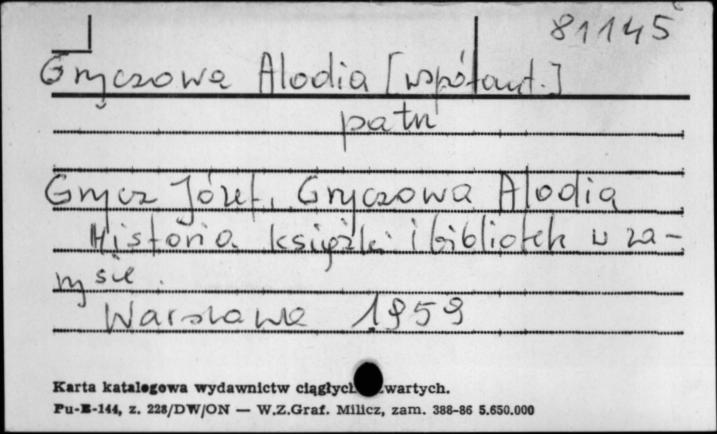 81145
Gryczowa Alodia [współaut.]
patrz
Grycz Józef, Gryczowa Alodia
Historia książki i bibliotek w za-
rysie.
Warszawa 1959
Karta katalogowa wydawnictw ciągłych zwartych.
Pu-K-144, z. 228/DW/ON — W.Z.Graf. Milicz, zam. 388-86 5.650.000